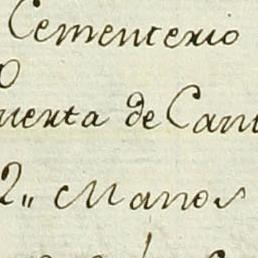 Cementerio
o
uerta de Can
2,, Manos